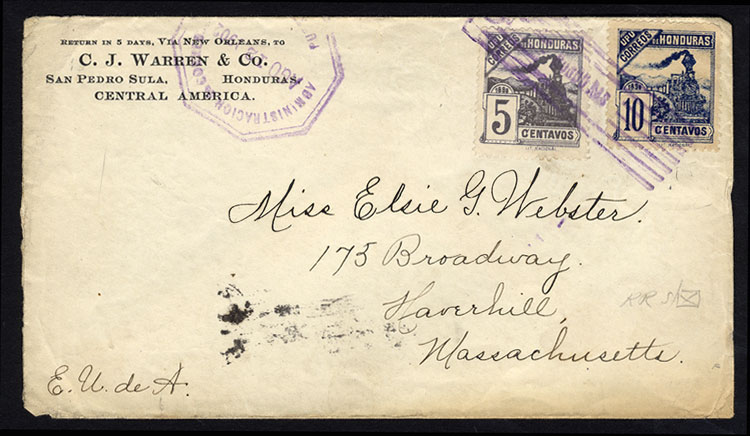 RETURN IN 5 DAYS, VIA NEW ORLEANS, TO
C. J. WARREN & CO.
SAN PEDRO SULA, HONDURAS
CENTRAL AMERICA.
ADMINISTRACION
AGO
1902
UPU
CORREOS
DE HONDURAS
1898
5
CENTAVOS
LIT. NACIONAL
UPU
CORREOS
DE HONDURAS
1898
10
CENTAVOS
LIT. NACIONAL
Miss Elsie G. Webster.
175 Broadway.
Haverhill,
Massachusetts.
RR
E. U. de A.